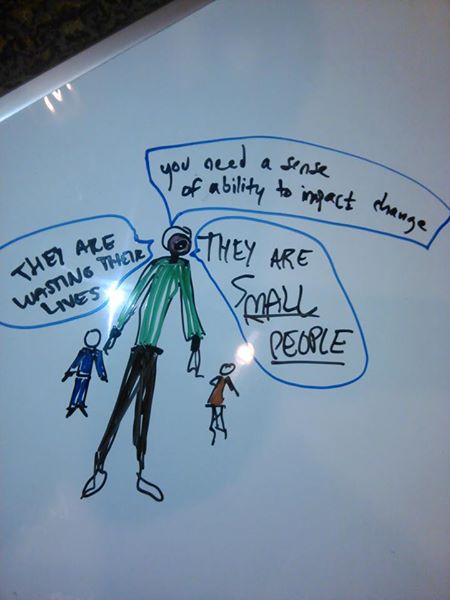 you need a sense
of ability to impact change
THEY ARE
WASTING THEIR
LIVES
THEY ARE
SMALL
PEOPLE